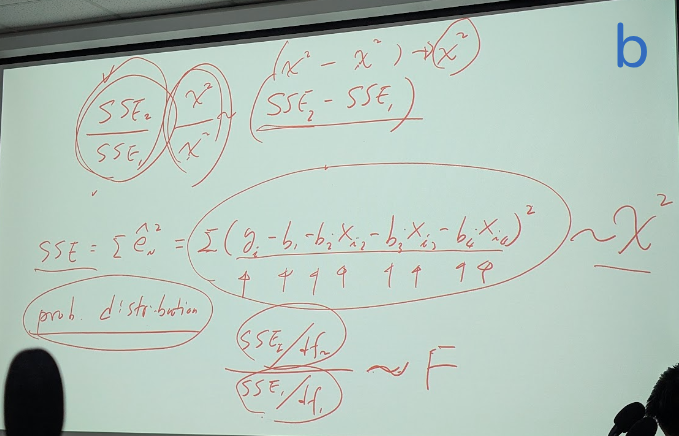 b
(χ² - χ²) → χ²
SSE₂/SSE₁ χ²/χ² ~ (SSE₂ - SSE₁)
SSE = Σ ê² = Σ(y_i - b₁ - b₂x_i₂ - b₃x_i₃ - b₄x_i₄)² ~ χ²
prob. distribution
(SSE₂/df₂)/(SSE₁/df₁) ~ F